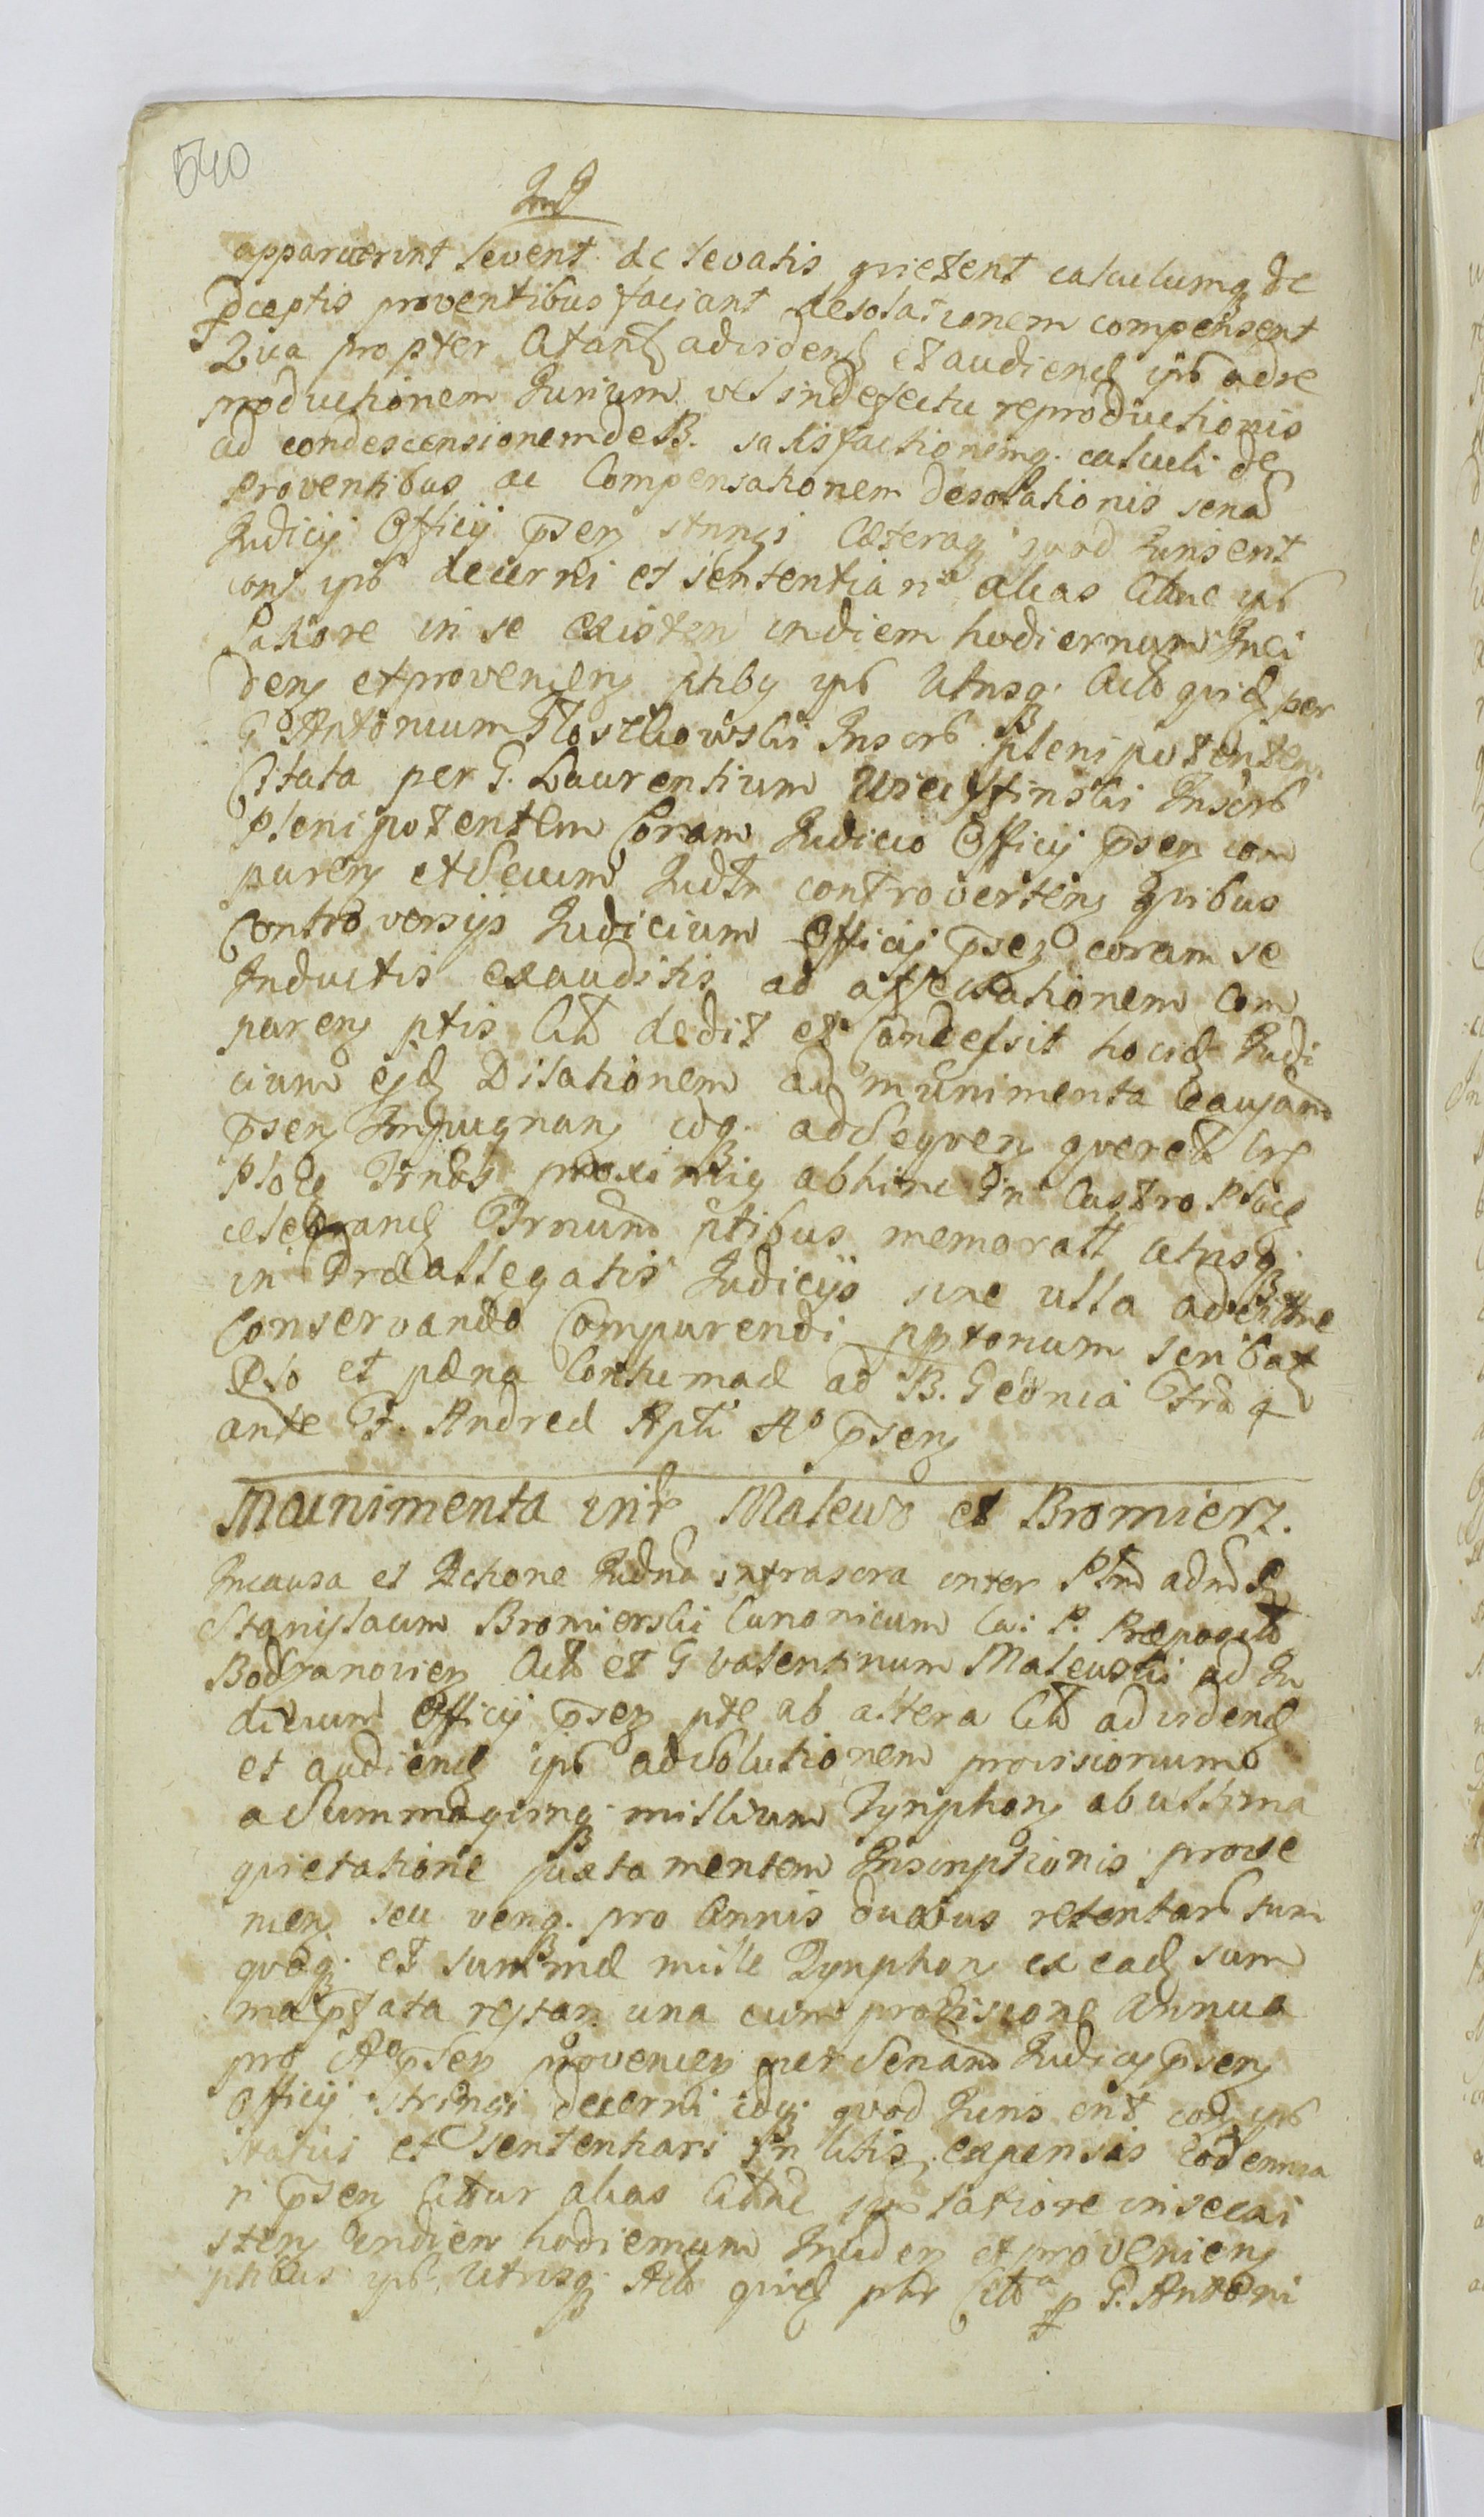 540
apparuerint levent de levatis quietent calculumq de
pceptis proventibus faciant desolationem compensent
Qua propter Citant ad vidend et audiend ipb ad re
productionem Jurium vel in defectu reproductionis
ad condescensionem de B. satisfactionemq. calculi de
proventibus ac Compensationem desolationis senad
Judicij Officij psen stringi Cæteraq quod Juris erit
con ipb decerni et sententia ri alias Citne ipb
Latiore in se existen in diem hodiernum Inci
den et provenien ptibq ipb Utrisq. Actb quid per
G Antonium Inscrb plenipotenten
Citata per G. Laurentium Inscrb
plenipotentem Coram Judicio Officij psen com
paren et Secum Judtr controverten Quibus
Controversijs Judicium Officij psen coram se
Inductis exauditis ad affectationem Com
paren ptis Citt dedit et Condessit hocid Judi
cium ejd Dilationem ad munimenta Causam
psen Impugnan idq. ad Sequen querel
Ploc proximiq abhinc In Castro Plocen
celebrand Trnum ptibus memoratt utrisq
in Præallegatis Judicijs sine ulla adcittne
Conservando Comparendi pptorium
et pæna Contumac ad B. Geonia Fra q
ante F. Andreæ Apti Ao psen
Munimenta intr Malews et Bromierz.
In causa et Actione Judna infrascra inter
Stanislaum Bromierski Canonicum Præposit
Bodzanovien Actb et G Valentinum Malewski ad Ju
dicium Officij psen pte ab altera Citt ad vidend
et audiend ipb ad Solutionem provisionum
a Summa quinq. millium Tynphon ab ultima
quietatione juxta mentem Inscriptionis prove
nien seu venq. pro Annis duabus retentar sum
quaq. et summæ mille Tynphon ex ead sum
ma pfata restan una cum provisione Annua
pro Ao psen provenien per Senam Judicij psen
Officij stringi decerni idq. quod Juris erit con ipb
statui et sententiari In litis expensis Condemna
ri psen Cittur alias Citne sua latiore in se exi
sten in diem hodiernum Inciden et provenien
ptibus ipb. Utrisq. Actb quid ptr Citta p G. Antoni